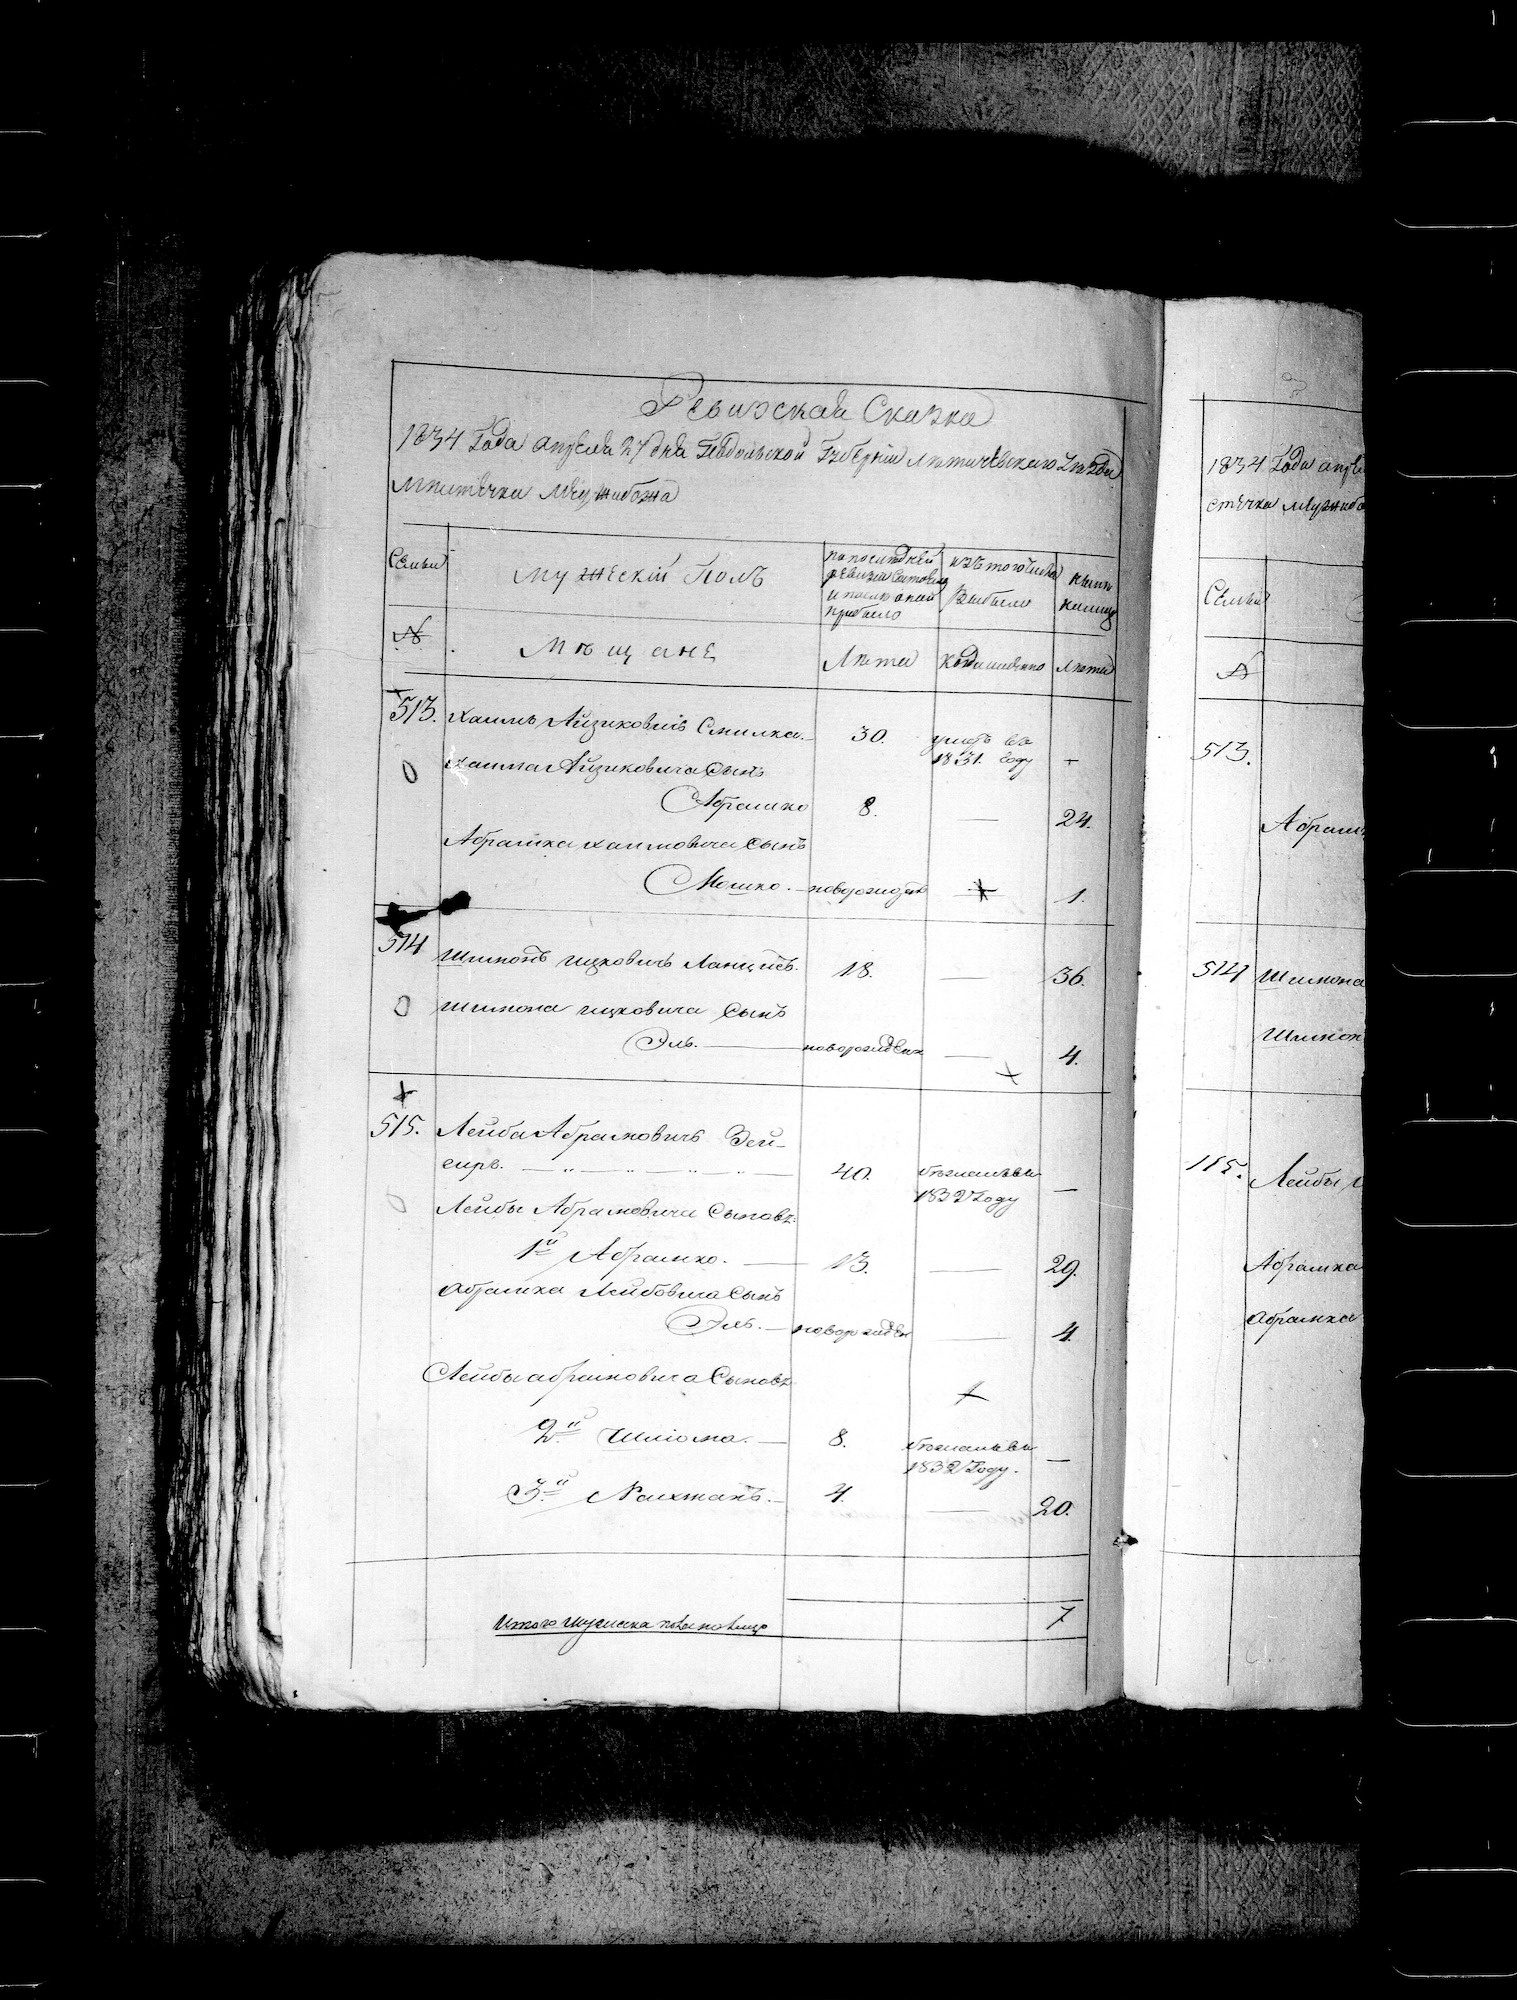 Ревизская Сказка
1834 Года апреля 27 дня Подольской Губерніи Летичевскаго уезда
местечка Межибожа
Семьи
мужескій полъ
по последней
ревизіи состояло
и после оной
прибыло
изъ того числа
Выбыло
ныне
на лицо
№
мещане
Лета
Когда именно
Лета
513.
Хаимъ Айзиковичъ Смилка.
30.
умеръ въ
1831. году
Хаима Айзиковича Сынъ
Абрамко
8.
24.
Абрамка Хаимовича Сынъ
Мошко. — новорожден
1.
514
Шимонъ Ицковичъ
18.
36.
Шимона Ицковича Сынъ
Эль. — новорожден
4.
515.
Лейба Абрамовичъ Зей-
серъ.
40.
1832 Году
Лейбы Абрамовича Сыновъ.
1й Абрамко.
13.
29.
Абрамка Лейбовича Сынъ
Эль. — новорожден
4.
Лейбы Абрамовича Сыновъ
2.й Шліома. —
8.
1832 Году.
3.й Нахманъ. —
4.
20.
Итого мужеска пола на лицо
7
1834 Года апре
стечка Межибо
Семьи
№
513.
Абрам
514
Шимона
Шимон
115.
Лейбы
Абрамка
Абрамка